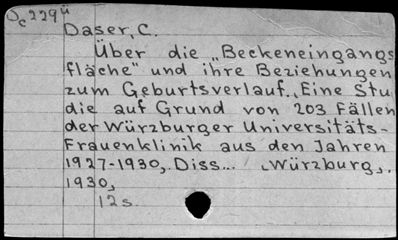 Uc229ü
Daser, C.
Über die „Beckeneingangs
fläche" und ihre Beziehungen
zum Geburtsverlauf. „Eine Stu
die auf Grund von 203 Fällen
der Würzburger Universitäts-
Frauenklinik aus den Jahren
1927-1930, Diss... Würzburg,.
1930,
12s.